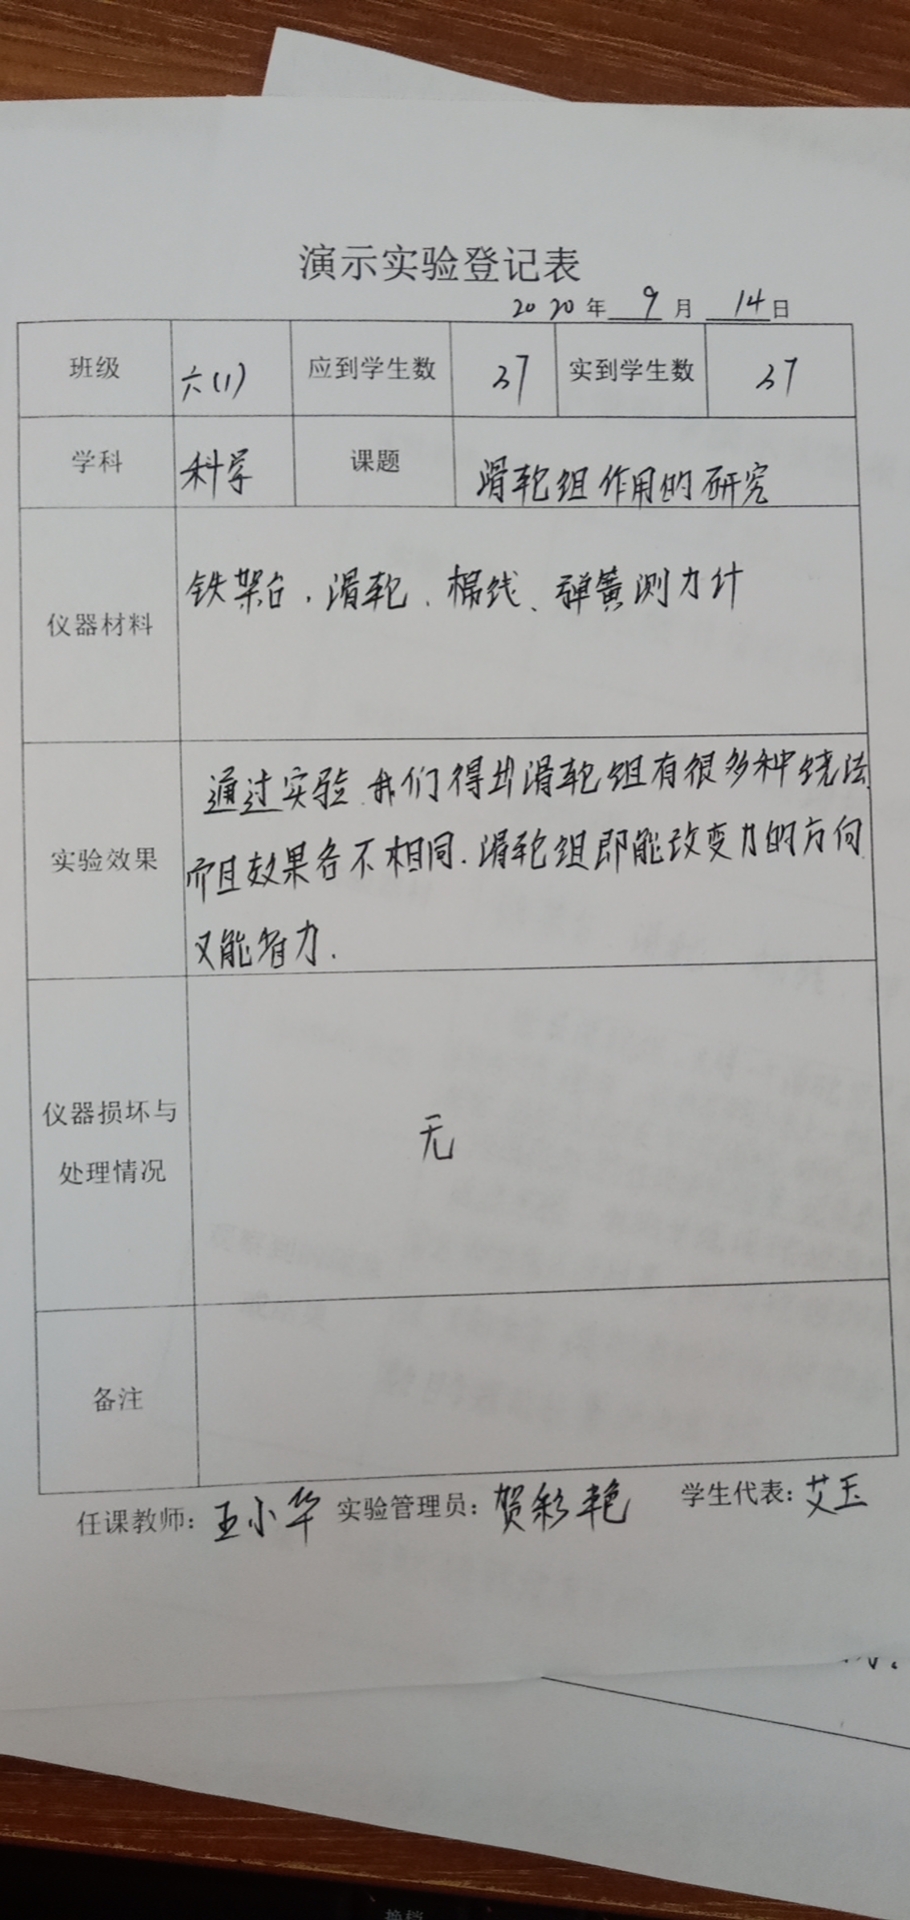 演示实验登记表
2020年 9 月 14 日
班级 六(1) 应到学生数 37 实到学生数 37
学科 科学 课题 滑轮组作用的研究
仪器材料 铁架台、滑轮、棉线、弹簧测力计
实验效果 通过实验 我们得出滑轮组有很多种绕法,
而且效果各不相同.滑轮组即能改变力的方向
又能省力.
仪器损坏与
处理情况 无
备注
任课教师：王小华 实验管理员：贺彩艳 学生代表：艾玉
换档